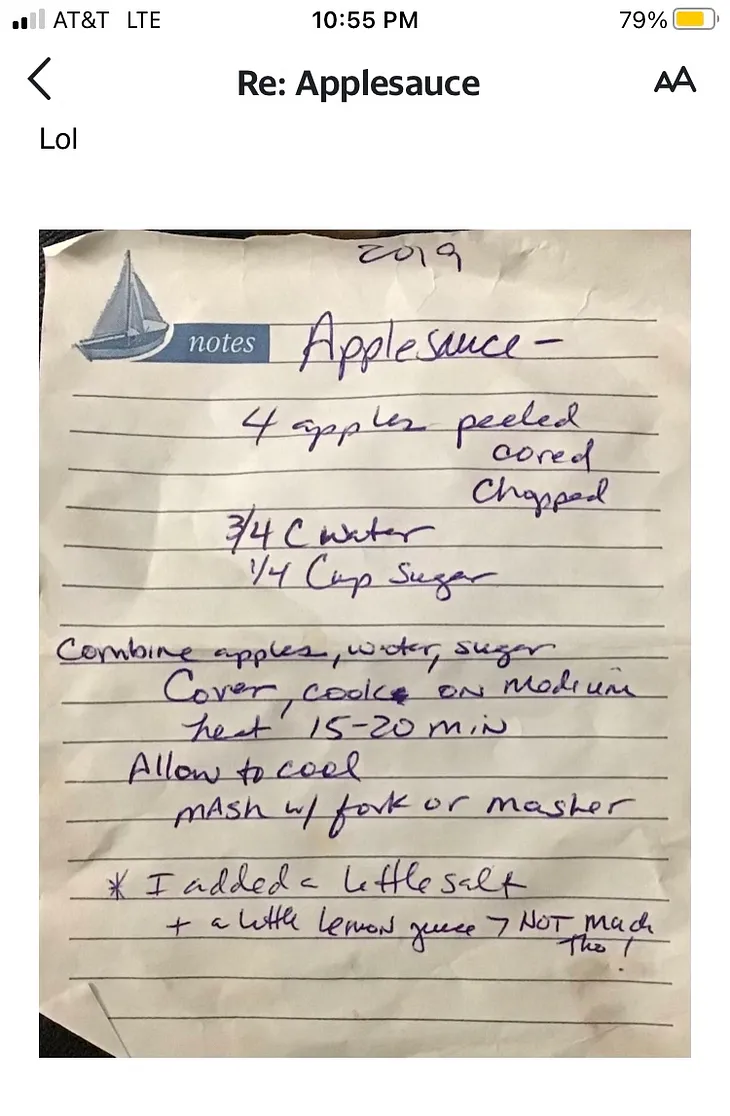 AT&T LTE 10:55 PM 79%
Re: Applesauce AA
Lol
2019
notes Applesauce -
4 apples peeled
cored
Chopped
3/4 C water
1/4 Cup Sugar
Combine apples, water, sugar
Cover, cook on Medium
heat 15-20 min
Allow to cool
mAsh w/ fork or masher
* I added a little salt
+ a little lemon juece → NOT Much
Tho!